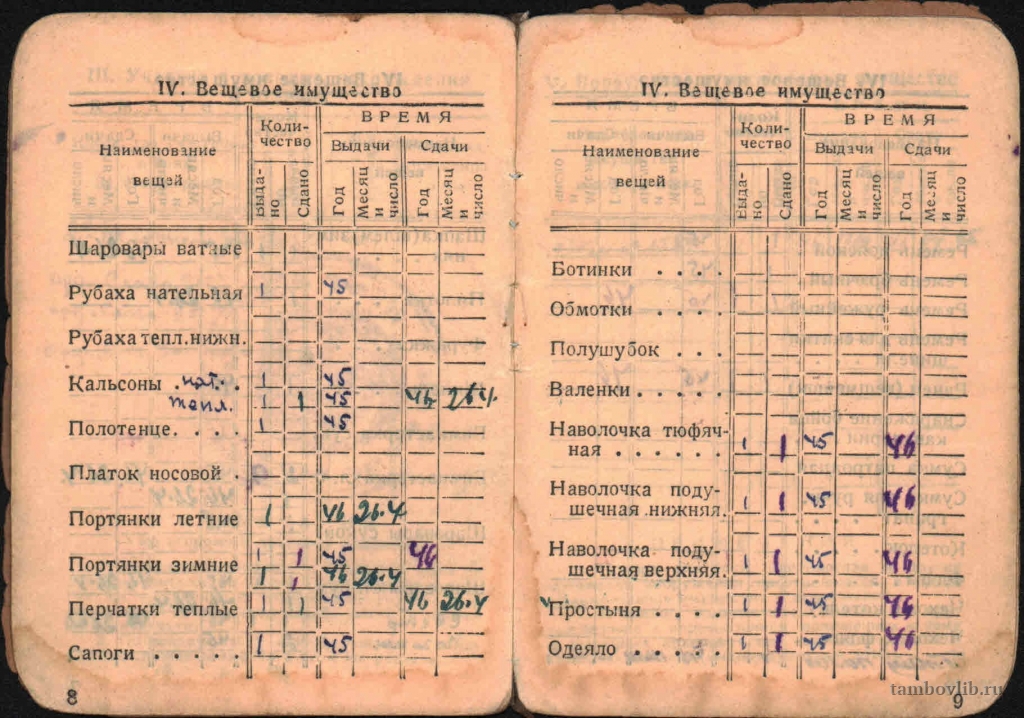 IV. Вещевое имущество
Наименование вещей
Коли-
чество
ВРЕМЯ
Выдачи
Сдачи
Выда-
но
Сдано
Год
Месяц и число
Год
Месяц и число
Шаровары ватные
Рубаха нательная 1 45
Рубаха тепл. нижн.
Кальсоны . нат. . 1 45
тепл. 1 1 45 46 26.4
Полотенце. . . . 1 45
Платок носовой .
Портянки летние 1 46 26.4
Портянки зимние 1 1 45 46
1 1 46 26.4
Перчатки теплые 1 1 45 46 26.4
Сапоги . . . . . 1 45
8
IV. Вещевое имущество
Наименование вещей
Коли-
чество
ВРЕМЯ
Выдачи
Сдачи
Выда-
но
Сдано
Год
Месяц и число
Год
Месяц и число
Ботинки . . . .
Обмотки . . . .
Полушубок . . .
Валенки . . . . .
Наволочка тюфяч-
ная . . . . . . 1 1 45 46
Наволочка поду-
шечная нижняя. 1 1 45 46
Наволочка поду-
шечная верхняя. 1 1 45 46
Простыня . . . . 1 1 45 46
Одеяло . . . . . 1 1 45 46
9
tambovlib.ru